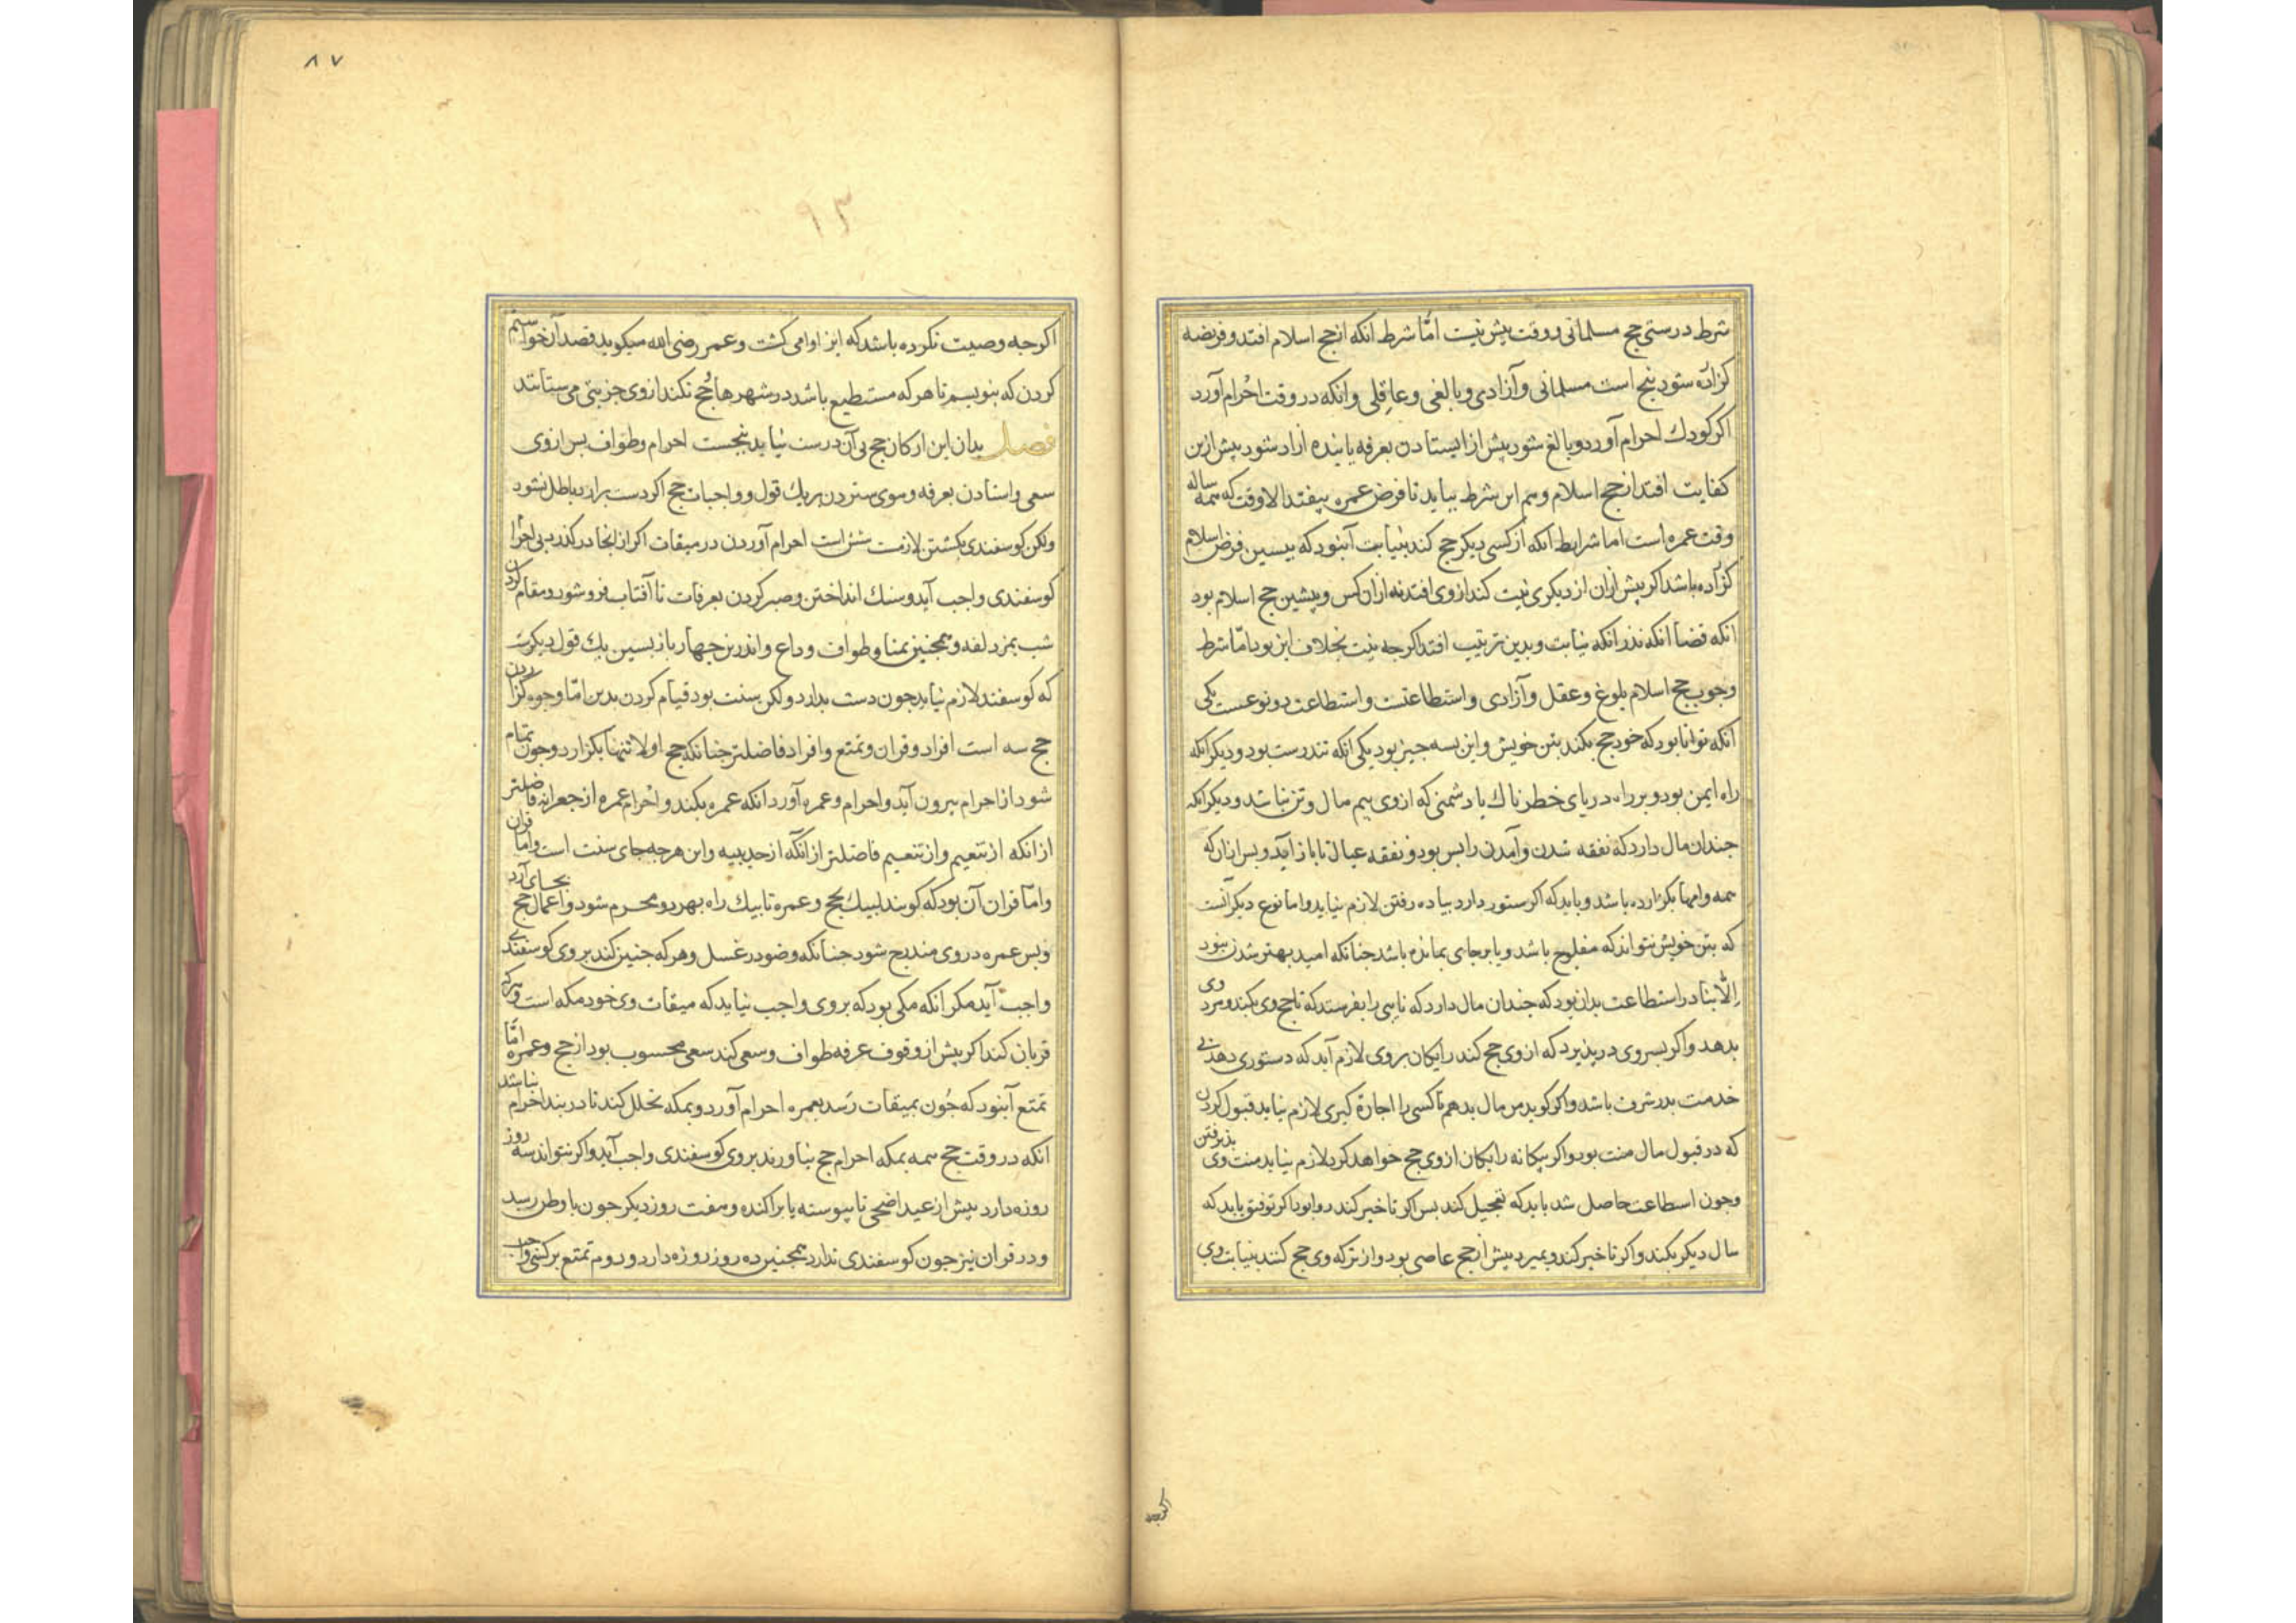 شرط درستی حج مسلمانی و وقت بیش نیست امّا شرط انکه از حج اسلام افتد و فریضه
کزارده شود پنج است مسلمانی و آزادی و بالغی و عاقلی و انکه در وقت احرام آورد
اکر کودک احرام آورد و بالغ شود پیش از ایستادن بعرفه یا بنده ازاد شود پیش ازین
کفایت افتد از حج اسلام و هم این شرط بباید تا فرض عمره بیفتد الا وقت که همه ساله
وقت عمره است اما شرایط انکه از کسی دیکر حج کند بنیابت آنبود که بیشین فرض اسلام
کزارده باشد اکر پیش ازان از دیکری نیت کند از وی افتد نه ازان کس و پیشین حج اسلام بود
انکه قضا انکه نذر انکه نیابت و بدین ترتیب افتد اکرجه نیت بخلاف این بود امّا شرط
وجوب حج اسلام بلوغ و عقل و آزادی و استطاعتست و استطاعت دو نوعست یکی
انکه توانا بود که خود حج بکند بتن خویش و این بسه جیز بود یکی انکه تندرست بود و دیکر انکه
راه ایمن بود و بر راه دریای خطرناک یا دشمنی که از وی بیم مال و تن نباشد و دیکر انکه
جندان مال دارد که نفقه شدن و آمدن را بس بود و نفقه عیال تا باز آید و بس ازان که
همه وامها بکزارده باشد و باید که اکر ستور دارد بیاده رفتن لازم نیاید و اما نوع دیکر آنست
که بتن خویش نتواند که مفلوج باشد و یا برجای بمانده باشد جنانکه امید بهتر شدن نبود
الّا بنادر استطاعت بدان بود که جندان مال دارد که نایبی را بفرستد که تا حج وی بکند و مزد وی
بدهد و اکر بسر وی در پذیرد که از وی حج کند رایکان بر وی لازم آید که دستوری دهد که
خدمت بدر شرف باشد و اکر کوید من مال بدهم تا کسی را اجاره کیری لازم نیاید قبول کردن
که در قبول مال منت بود و اکر بیکانه رایکان از وی حج خواهد کرد لازم نیاید منت وی بذیرفتن
وجون استطاعت حاصل شد باید که تعجیل کند بس اکر تاخیر کند روا بود اکر توفیق یابد که
سال دیکر بکند و اکر تاخیر کند و بمیرد بیش از حج عاصی بود و از ترکه وی حج کنند بنیابت وی
اکرجه
۸۷
۹۳
اکرجه وصیت نکرده باشد که این اوامی کشت و عمر رضی الله میکوید قصد آن خواستم
کردن که بنویسم تا هر که مستطیع باشد در شهرها و حج نکند از وی جزیتی می ستانند
فصل بدان این ارکان حج بی آن درست نیاید پنجست احرام و طواف بس از وی
سعی و استادن بعرفه و موی ستردن بر یک قول و واجبات حج اکر دست بدارد باطل نشود
ولکن کوسفندی بکشتن لازمست شش است احرام آوردن در میقات اکر از انجا درکذرد بی احرام
کوسفندی واجب آید و سنک انداختن و صبر کردن بعرفات تا آفتاب فرو شود و مقام کردن
شب بمزدلفه و همجنین بمنا و طواف وداع و اندرین جهار بازبسین یک قول دیکرست
که کوسفند لازم نیاید جون دست بدارد ولکن سنت بود قیام کردن بدین امّا وجوه کزاردن
حج سه است افراد و قران و تمتع و افراد فاضلتر جنانکه حج اولا تنها بکزارد و جون تمام
شود از احرام بیرون آید و احرام و عمره آورد انکه عمره بکند و احرام عمره از جعرانه فاضلتر
ازانکه از تنعیم و از تنعیم فاضلتر ازانکه از حدیبیه و این هرجه جای سنت است و اما قران
و امّا قران آن بود که کویند لبیک بحج و عمره تا بیک راه بهر دو محرم شود و اعمال حج بجای آرد
و بس عمره در وی مندرج شود جنانکه وضو در غسل و هر که جنین کند بر وی کوسفندی
واجب آید مکر انکه مکی بود که بر وی واجب نیاید که میقات وی خود مکه است و هرکه
قربان کند اکر پیش از وقوف عرفه طواف و سعی کند سعی محسوب بود از حج و عمره امّا
تمتع آنبود که جون بمیقات رسد بعمره احرام آورد و بمکه تحلل کند تا در بند احرام نباشد
انکه در وقت حج همه بمکه احرام حج بیاورند بر وی کوسفندی واجب آید و اکر نتواند سه روز
روزه دارد بیش از عید اضحی تا بیوسته یا براکنده و هفت روز دیکر جون با وطن رسید
و در قران نیز جون کوسفندی ندارد همجنین ده روز روزه دارد و دوم تمتع بر کسی واجب